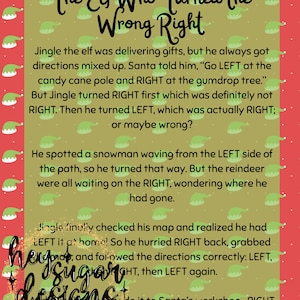 The Elf Who Turned the
Wrong Right
Jingle the elf was delivering gifts, but he always got
directions mixed up. Santa told him, "Go LEFT at the
candy cane pole and RIGHT at the gumdrop tree."
But Jingle turned RIGHT first which was definitely not
RIGHT. Then he turned LEFT, which was actually RIGHT;
or maybe wrong?
He spotted a snowman waving from the LEFT side of
the path, so he turned that way. But the reindeer
were all waiting on the RIGHT, wondering where he
had gone.
Jingle finally checked his map and realized he had
LEFT it at home! So he hurried RIGHT back, grabbed
and followed the directions correctly: LEFT,
then LEFT again.
hey sugar
designs